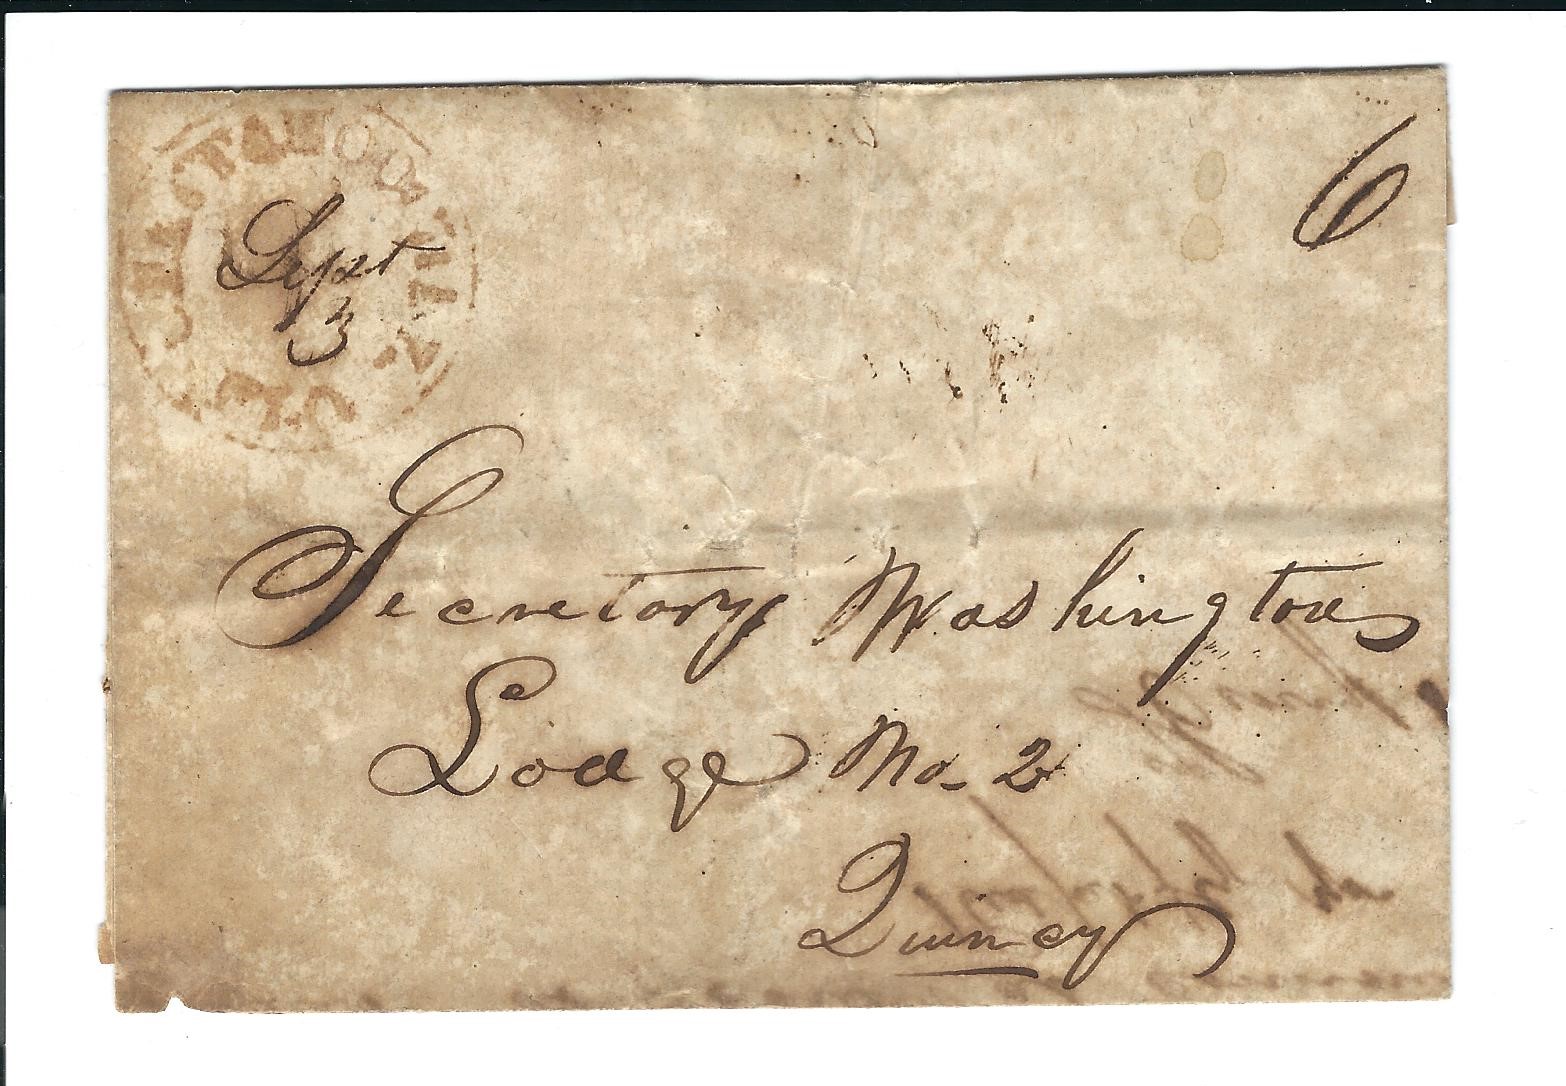 CHATTAHOOCHIE
Sept
3
6
Secretary Washington
Lodge No. 2
Quincy